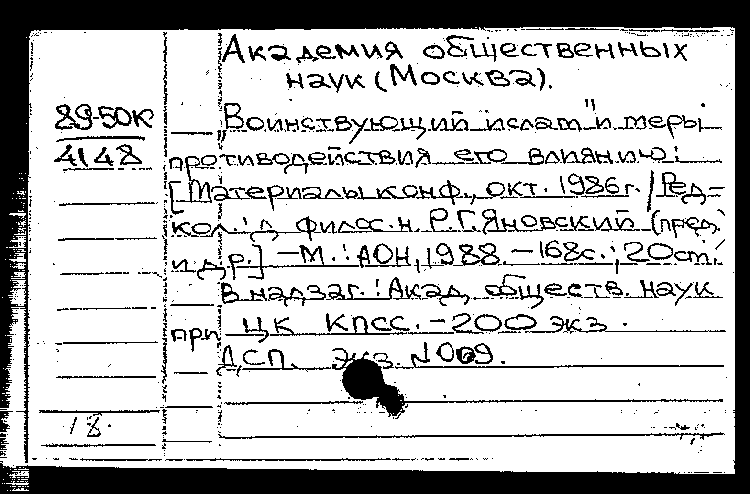 Академия общественных
наук (Москва).
89-50К
4148
„Воинствующий ислам" и меры
противодействия его влиянию:
[Материалы конф., окт. 1986г. / Ред-
кол.: д. филос. н. Р.Г. Яновский (пред.)
и др.] – М.: АОН, 1988. – 168с.; 20см.
В надзаг.: Акад. обществ. наук
при ЦК КПСС. – 200 экз.
ДСП. Экз. N009.
18.